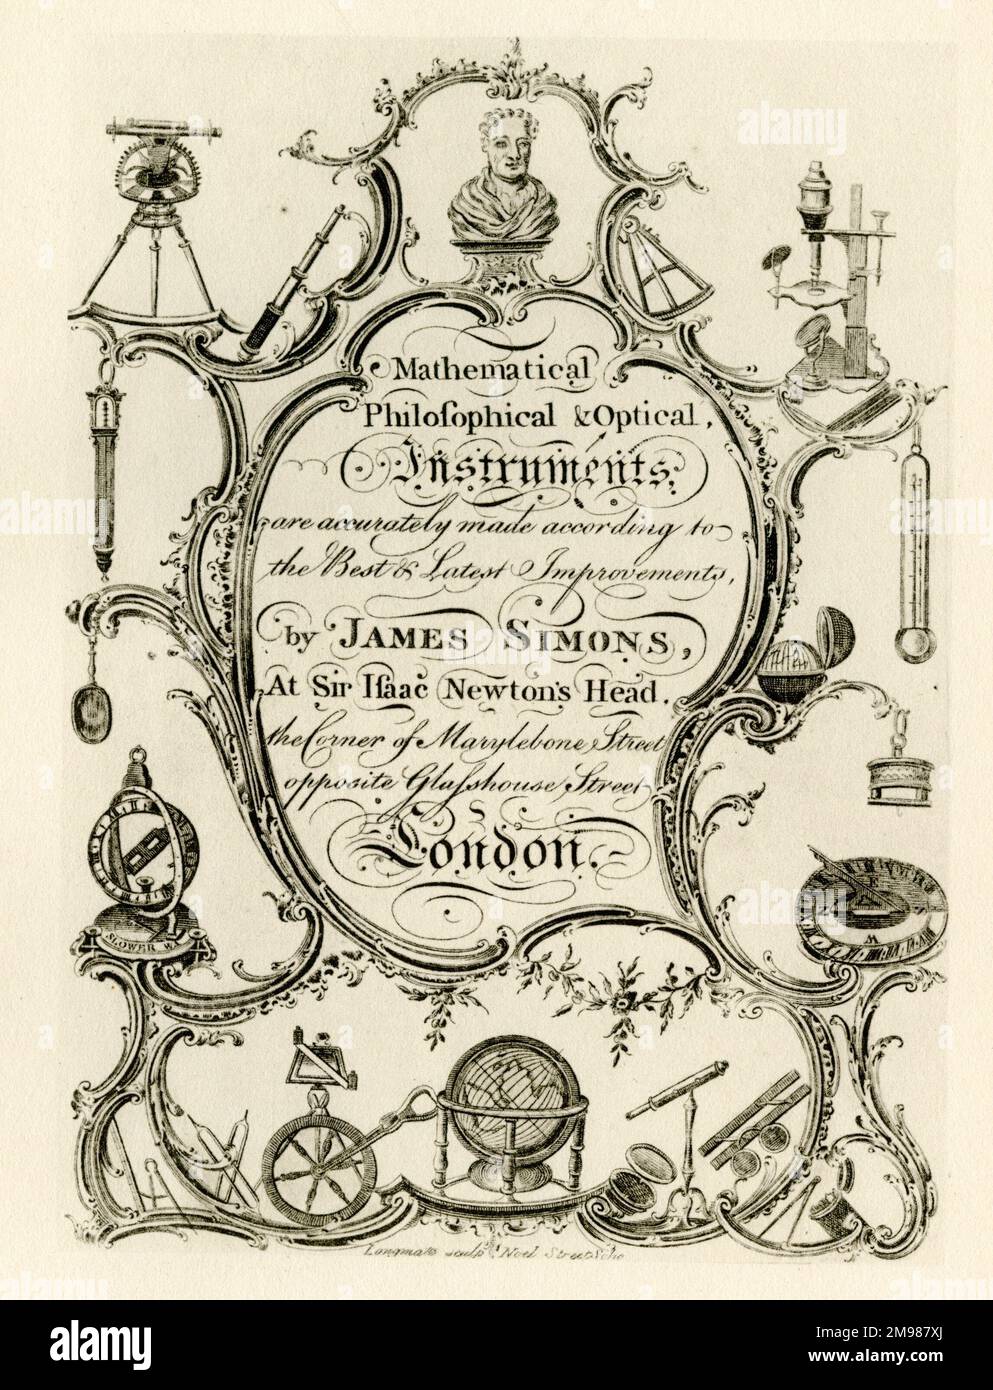 Mathematical
Philoſophical & Optical,
Instruments,
are accurately made according to
the Best & Latest Improvements,
by JAMES SIMONS,
At Sir Iſaac Newton's Head.
the Corner of Marylebone Street
opposite Glaſshouse Street
London.
SLOWER W
E
W
Longmate sculpt. Noel Street Soho
alamy
Image ID: M987XJ
www.alamy.com